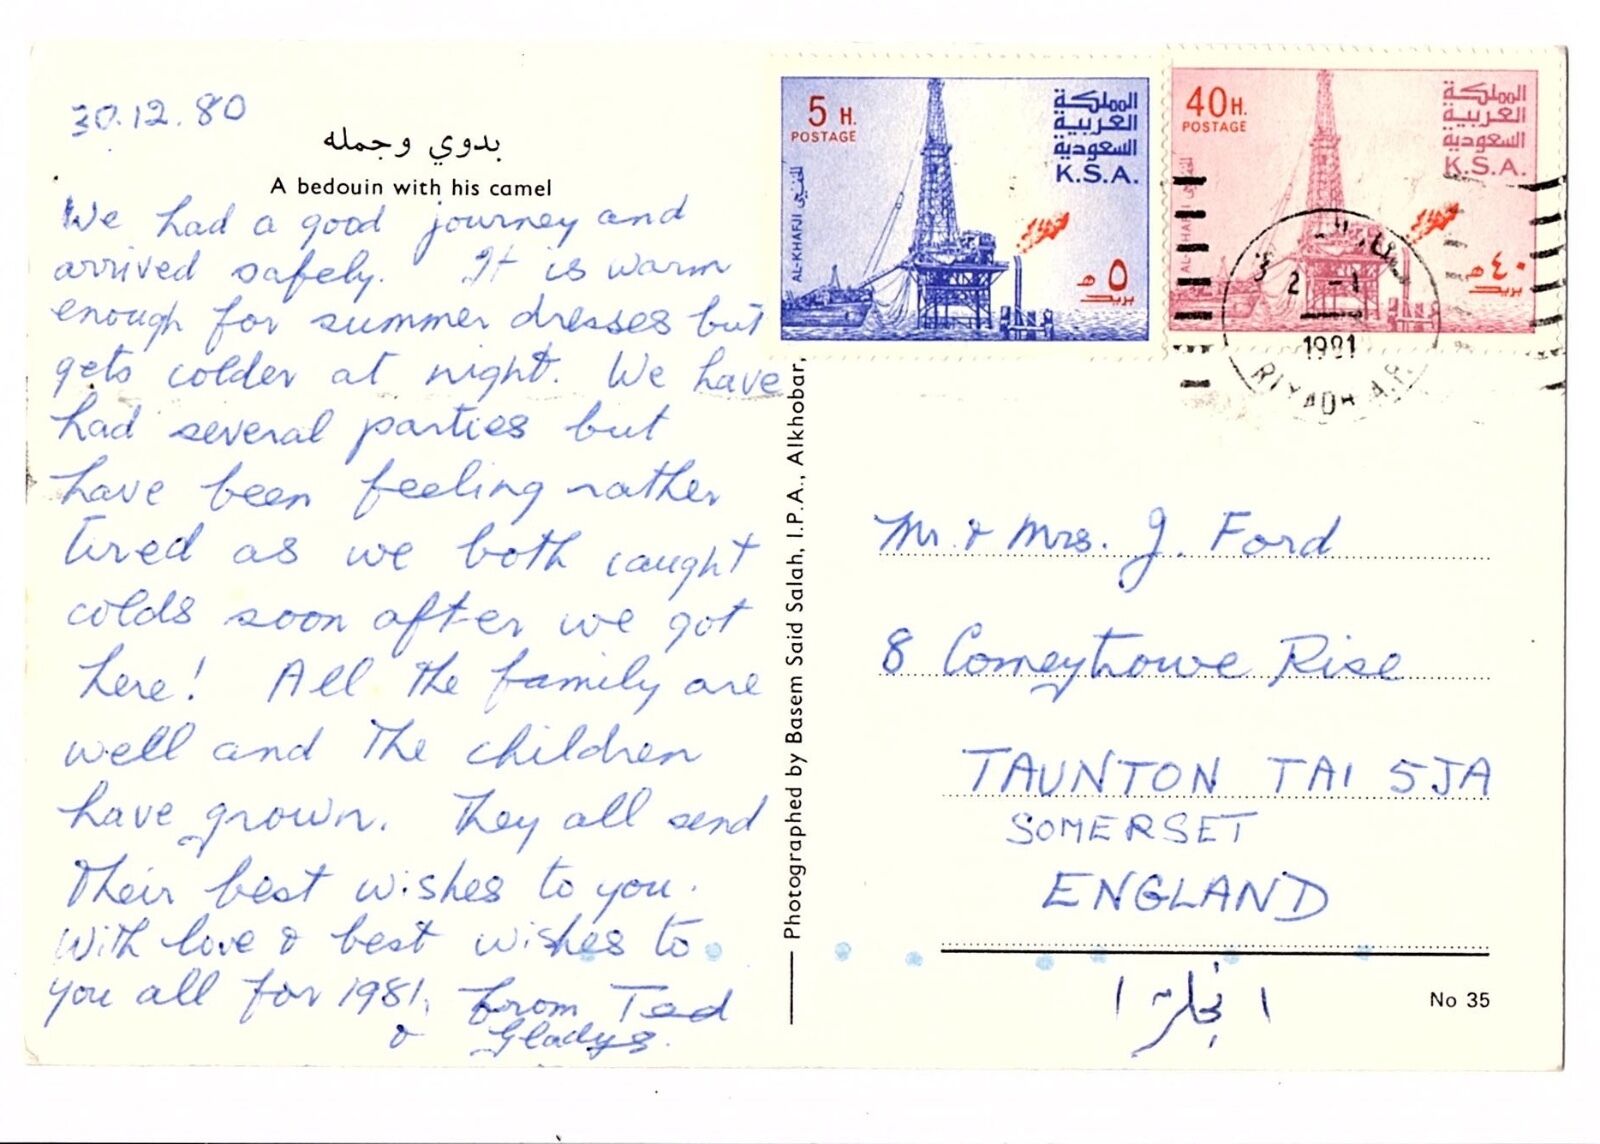 30.12.80
بدوي وجمله
A bedouin with his camel
We had a good journey and
arrived safely. It is warm
enough for summer dresses but
gets colder at night. We have
had several parties but
have been feeling rather
tired as we both caught
colds soon after we got
here! All the family are
well and the children
have grown. They all send
their best wishes to you.
With love & best wishes to
you all for 1981. from Ted
& Gladys.
Photographed by Basem Said Salah, I.P.A., Alkhobar,
5 H.
POSTAGE
المملكة
العربية
السعودية
K.S.A.
AL-KHAFJI الخفجي
٥ هـ
بريد
40 H.
POSTAGE
المملكة
العربية
السعودية
K.S.A.
AL-KHAFJI الخفجي
٤٠ هـ
بريد
3 2 -1
1981
RIYADH A.P.
Mr. & Mrs. J. Ford
8 Comeytrowe Rise
TAUNTON TA1 5JA
SOMERSET
ENGLAND
انجلترا
No 35